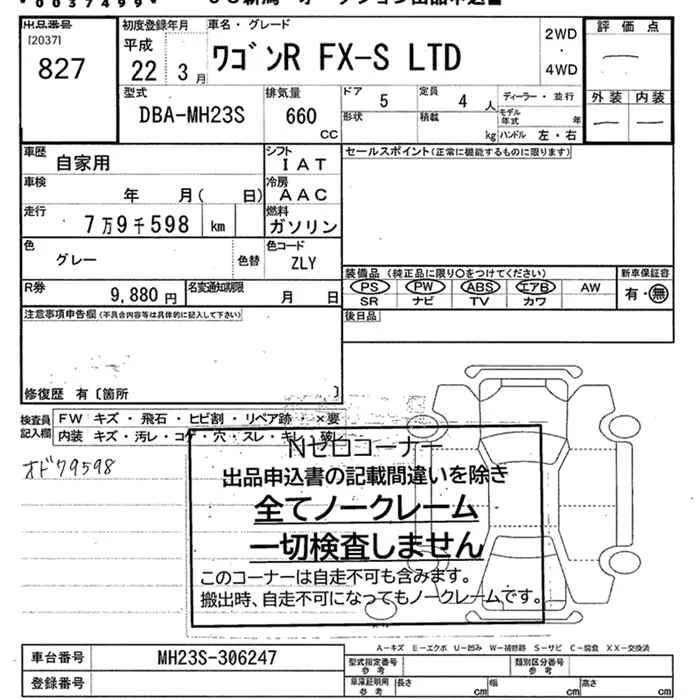 *0037499*
出品番号
[2037]
827
初度登録年月
平成
22 3月
車名・グレード
ワゴンR FX-S LTD
2WD
・
4WD
評価点
—
外装 内装
— —
型式
DBA-MH23S
排気量
660
CC
ドア
5
定員
4人
ディーラー・並行
モデル年式 年
形状
積載
kg
ハンドル 左・右
車歴
自家用
シフト
IAT
セールスポイント(正常に機能するものに限ります)
車検
年 月( 日)
冷房
AAC
走行
7万9千598 km
燃料
ガソリン
色
グレー
色替
色コード
ZLY
装備品(純正品に限り○をつけてください)
新車保証書
PS PW ABS エアB AW
SR ナビ TV カワ
有・無
R券
9,880円
名変通知期限
月 日
後日品
注意事項申告欄(不具合内容等は具体的に記入して下さい)
修復歴 有〔箇所 〕
検査員記入欄
FW キズ・飛石・ヒビ割・リペア跡・×要
内装 キズ・汚レ・コゲ・穴・スレ・キレ・破レ
オド79598
Nゼロコーナー
出品申込書の記載間違いを除き
全てノークレーム
一切検査しません
このコーナーは自走不可も含みます。
搬出時、自走不可になってもノークレームです。
A-キズ E-エクボ U-凹み W-補修跡 S-サビ C-腐食 XX-交換済
車台番号
MH23S-306247
型式指定番号
参考
類別区分番号
参考
登録番号
車庫証明用
参考
長さ cm
幅 cm
高さ cm